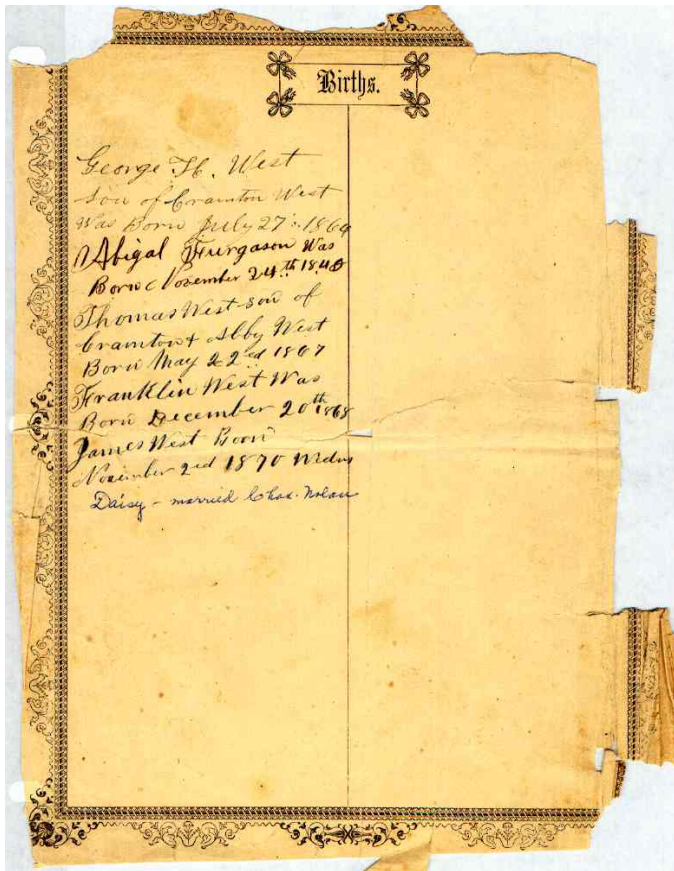 Births.
George H. West
Son of Cramton West
Was Born July 27th 1864
Abigal Furgason Was
Born November 24th 1840
Thomas West son of
Cramton & Abby West
Born May 22ed 1867
Franklin West Was
Born December 20th 1868
James West Born
November 2ed 1870
Daisy - married Chas. Nolan